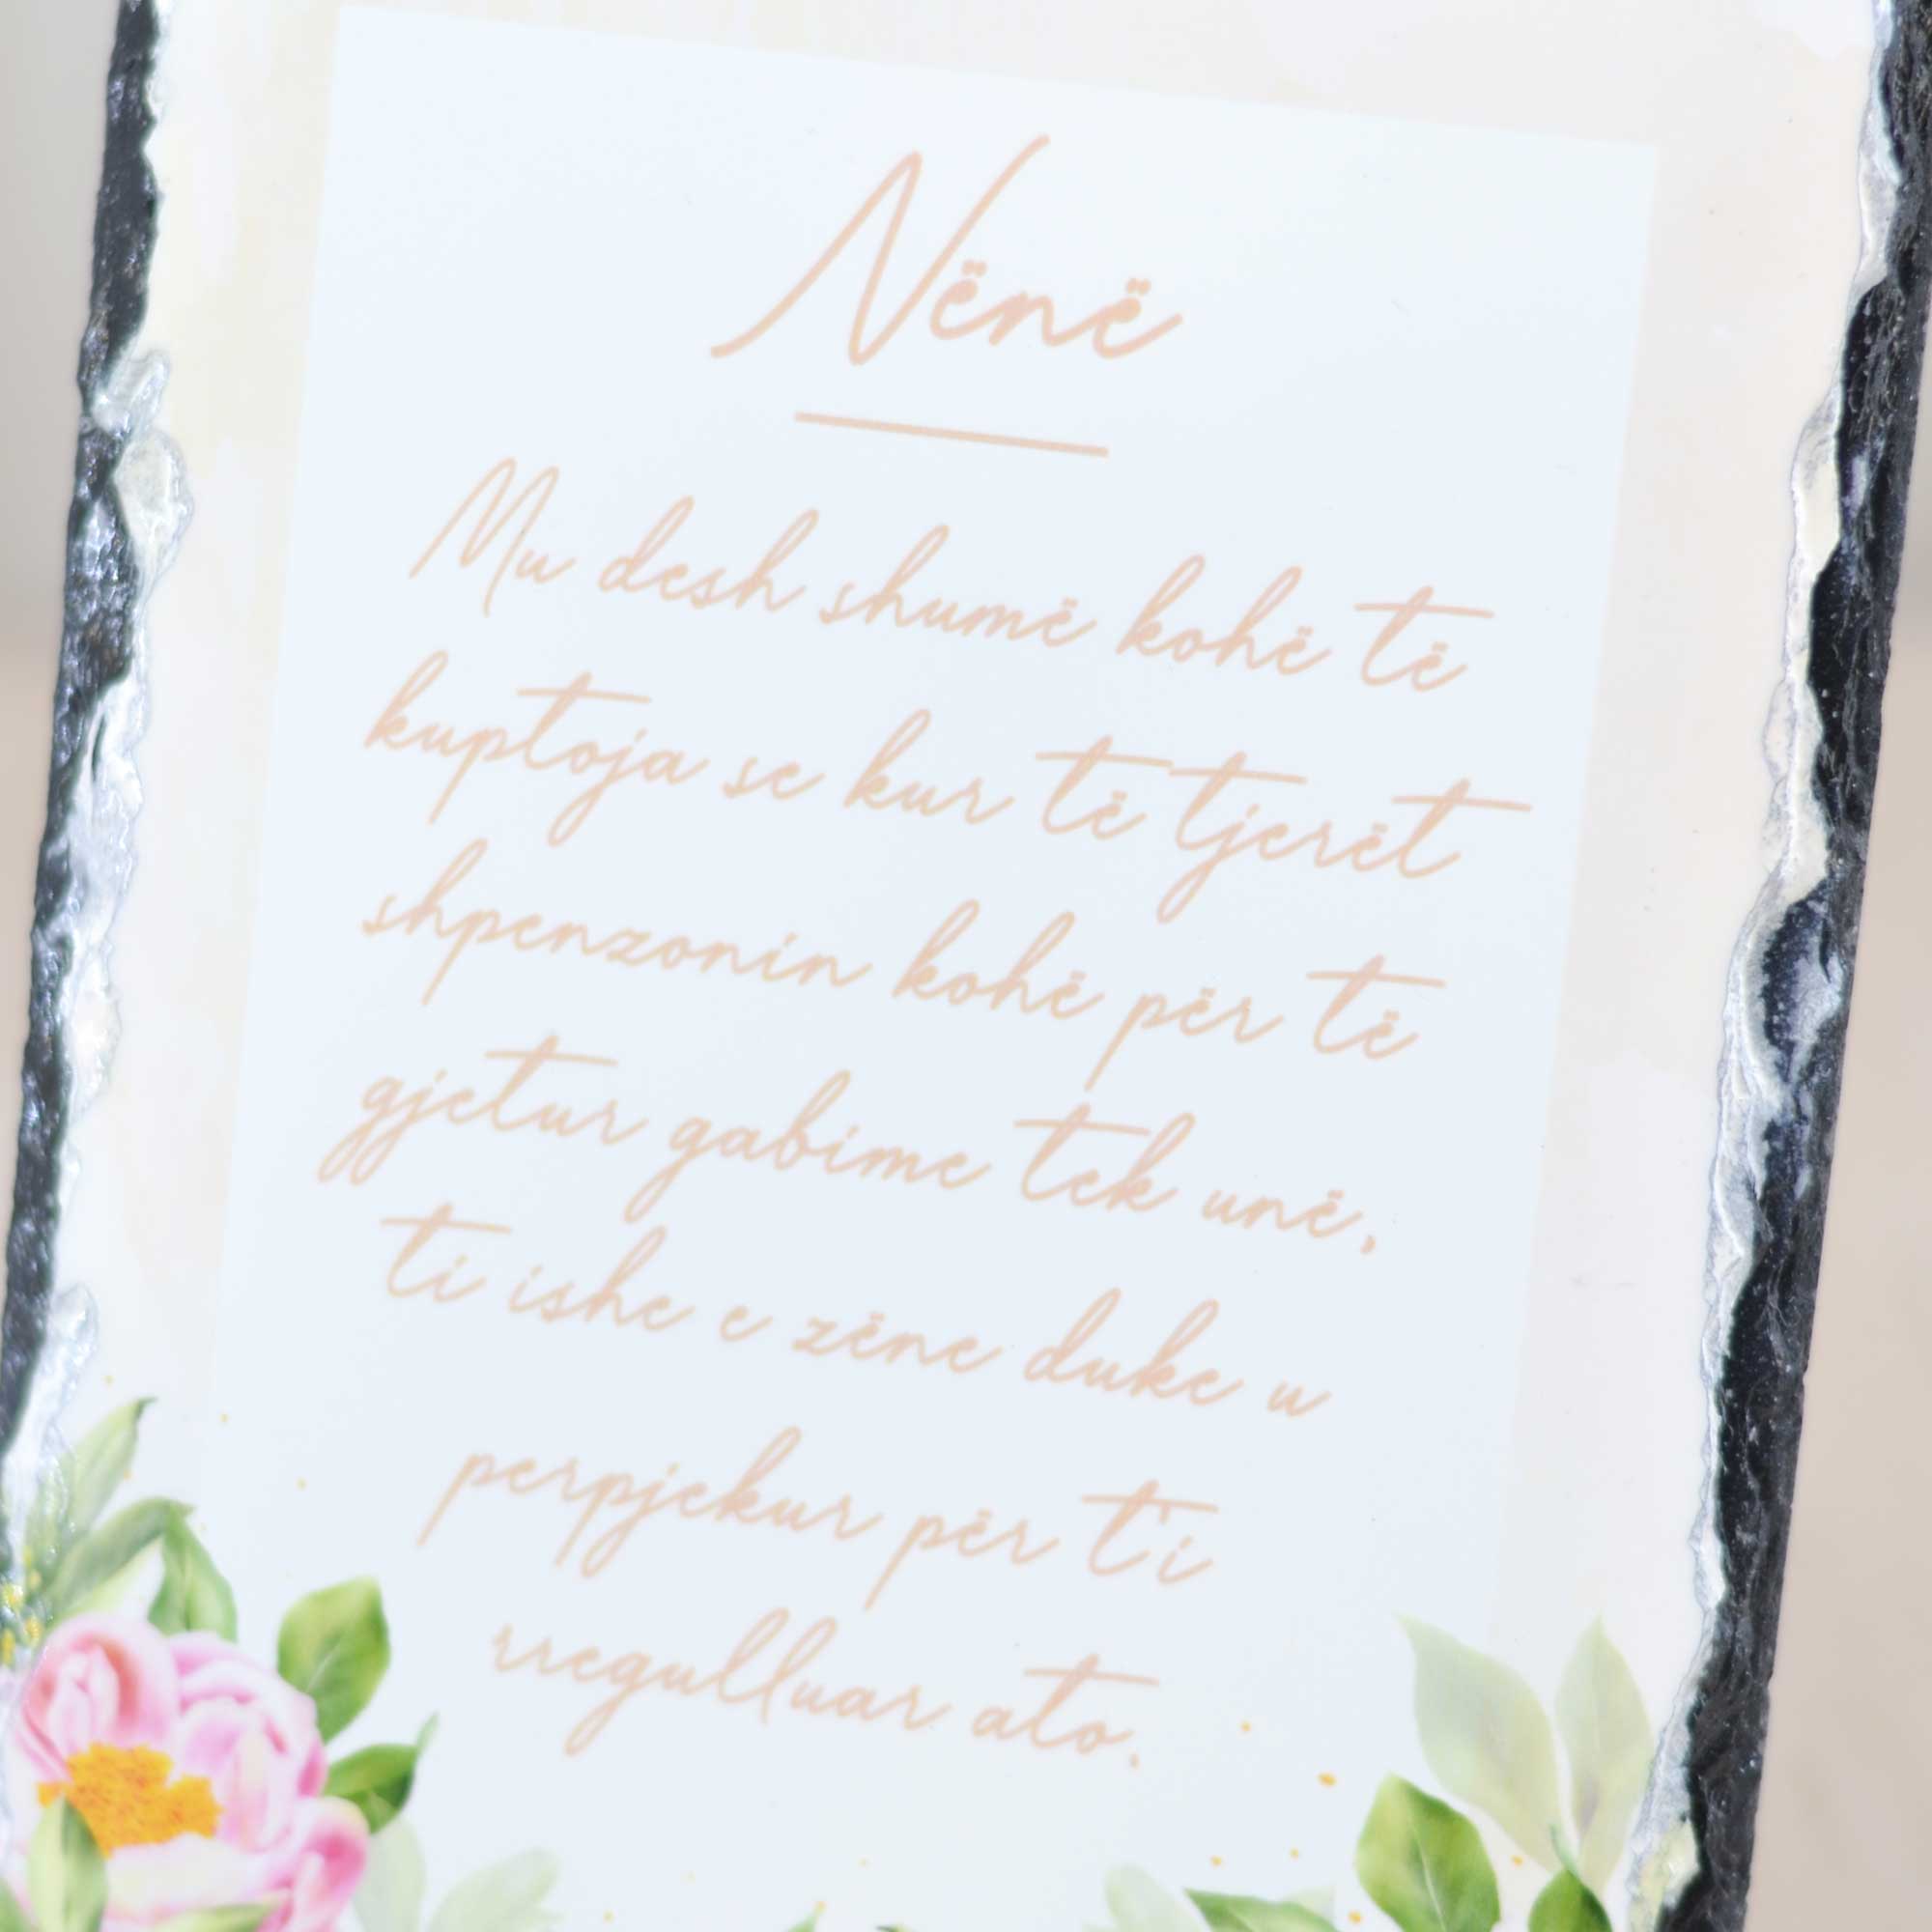 Nënë
Mu desh shumë kohë të
kuptoja se kur të tjerët
shpenzonin kohë për të
gjetur gabime tek unë,
ti ishe e zëne duke u
perpjekur për t'i
rregulluar ato.